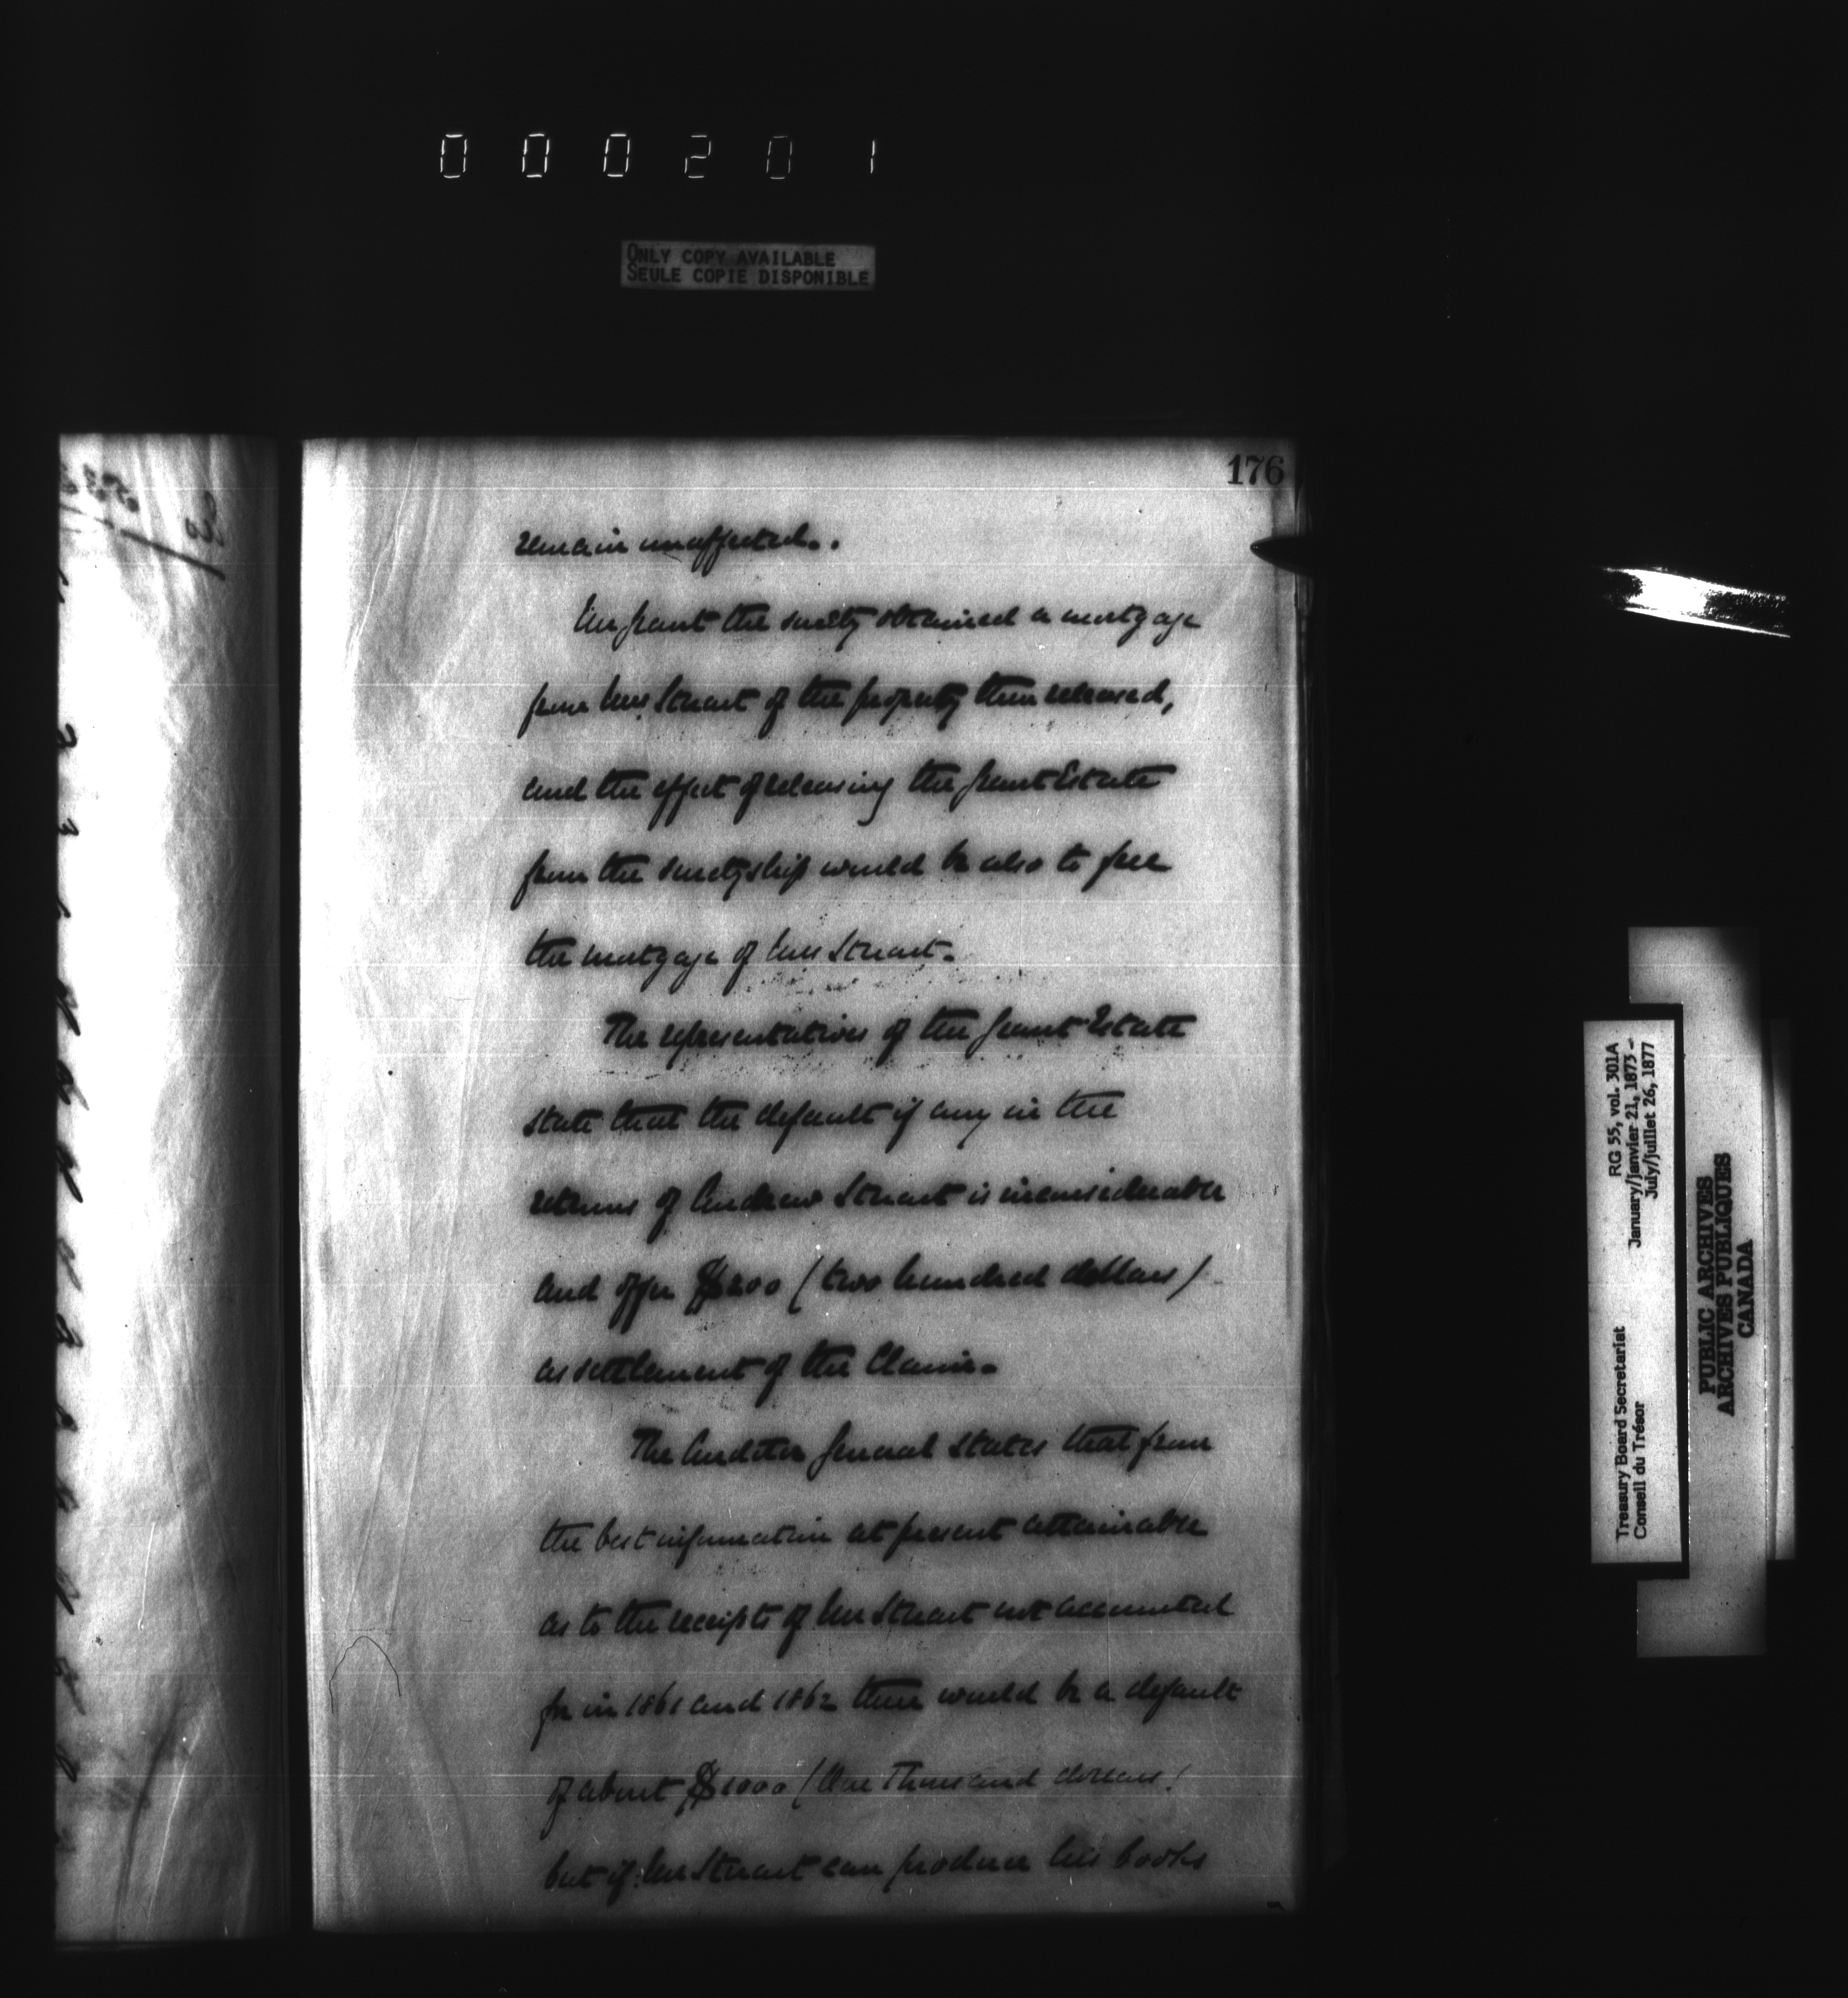 000201
ONLY COPY AVAILABLE
SEULE COPIE DISPONIBLE
176
remain unaffected.
Mr Grant the surety obtained a mortgage
from Mr Stuart of the property then released,
and the effect of releasing the Grant Estate
from the suretyship would be also to free
the mortgage of Mr Stuart.
The representatives of the Grant Estate
state that the default if any in the
returns of Andrew Stuart is inconsiderable
and offer $200 (two hundred dollars)
as settlement of the Claim.
The Auditor General states that from
the best information at present attainable
as to the receipts of Mr Stuart not accounted
for in 1861 and 1862 there would be a default
of about $1000 (One Thousand dollars)
but if Mr Stuart can produce his books
RG 55, vol. 301A
January/janvier 21, 1873 -
July/juillet 26, 1877
Treasury Board Secretariat
Conseil du Trésor
PUBLIC ARCHIVES
ARCHIVES PUBLIQUES
CANADA